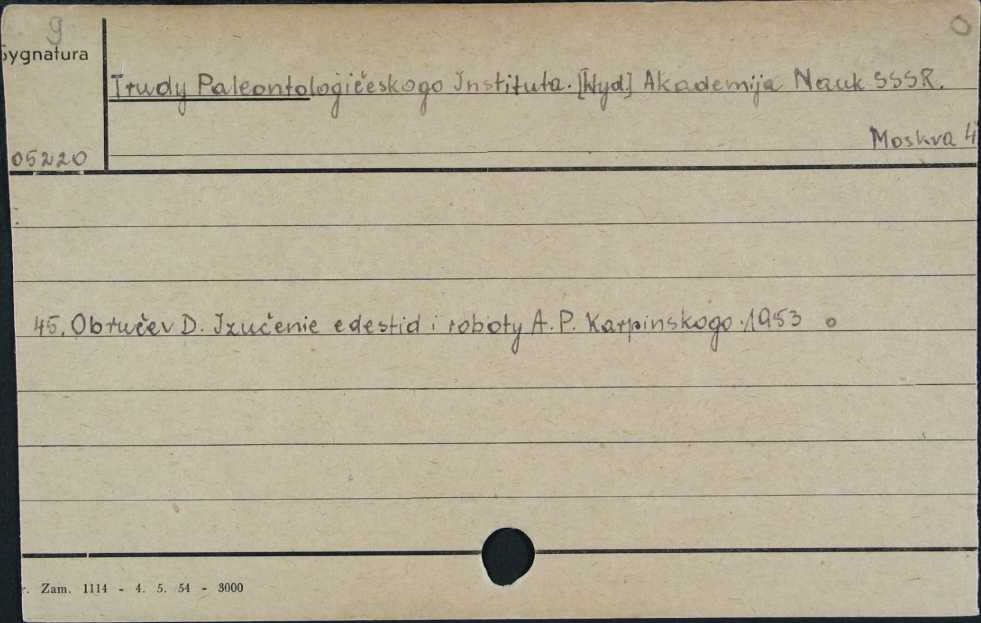 9
Sygnatura
Trudy Paleontologičeskogo Instituta. [Wyd.] Akademija Nauk SSSR.
Moskva 4°
05220
45. Obručev D. Izučenie edestid i roboty A. P. Karpinskogo. 1953
r. Zam. 1114 - 4. 5. 54 - 3000